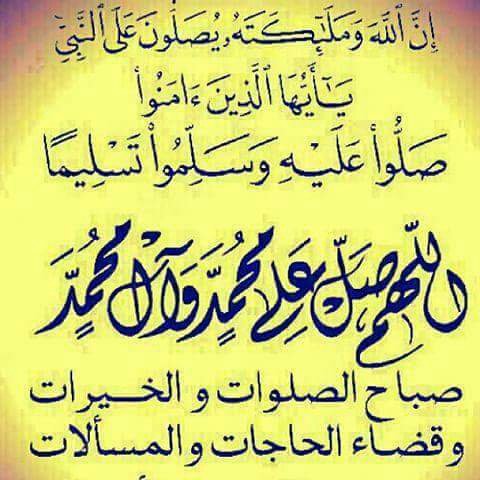 إِنَّ ٱللَّهَ وَمَلَـٰٓئِكَتَهُۥ يُصَلُّونَ عَلَى ٱلنَّبِيِّ
يَـٰٓأَيُّهَا ٱلَّذِينَ ءَامَنُوا۟
صَلُّوا۟ عَلَيْهِ وَسَلِّمُوا۟ تَسْلِيمًا
اللّهُم صَلِّ عَلى مُحُمَّدٍ وَآلِ مُحُمَّدٍ
صباح الصلوات و الخيرات
وقضاء الحاجات والمسألات